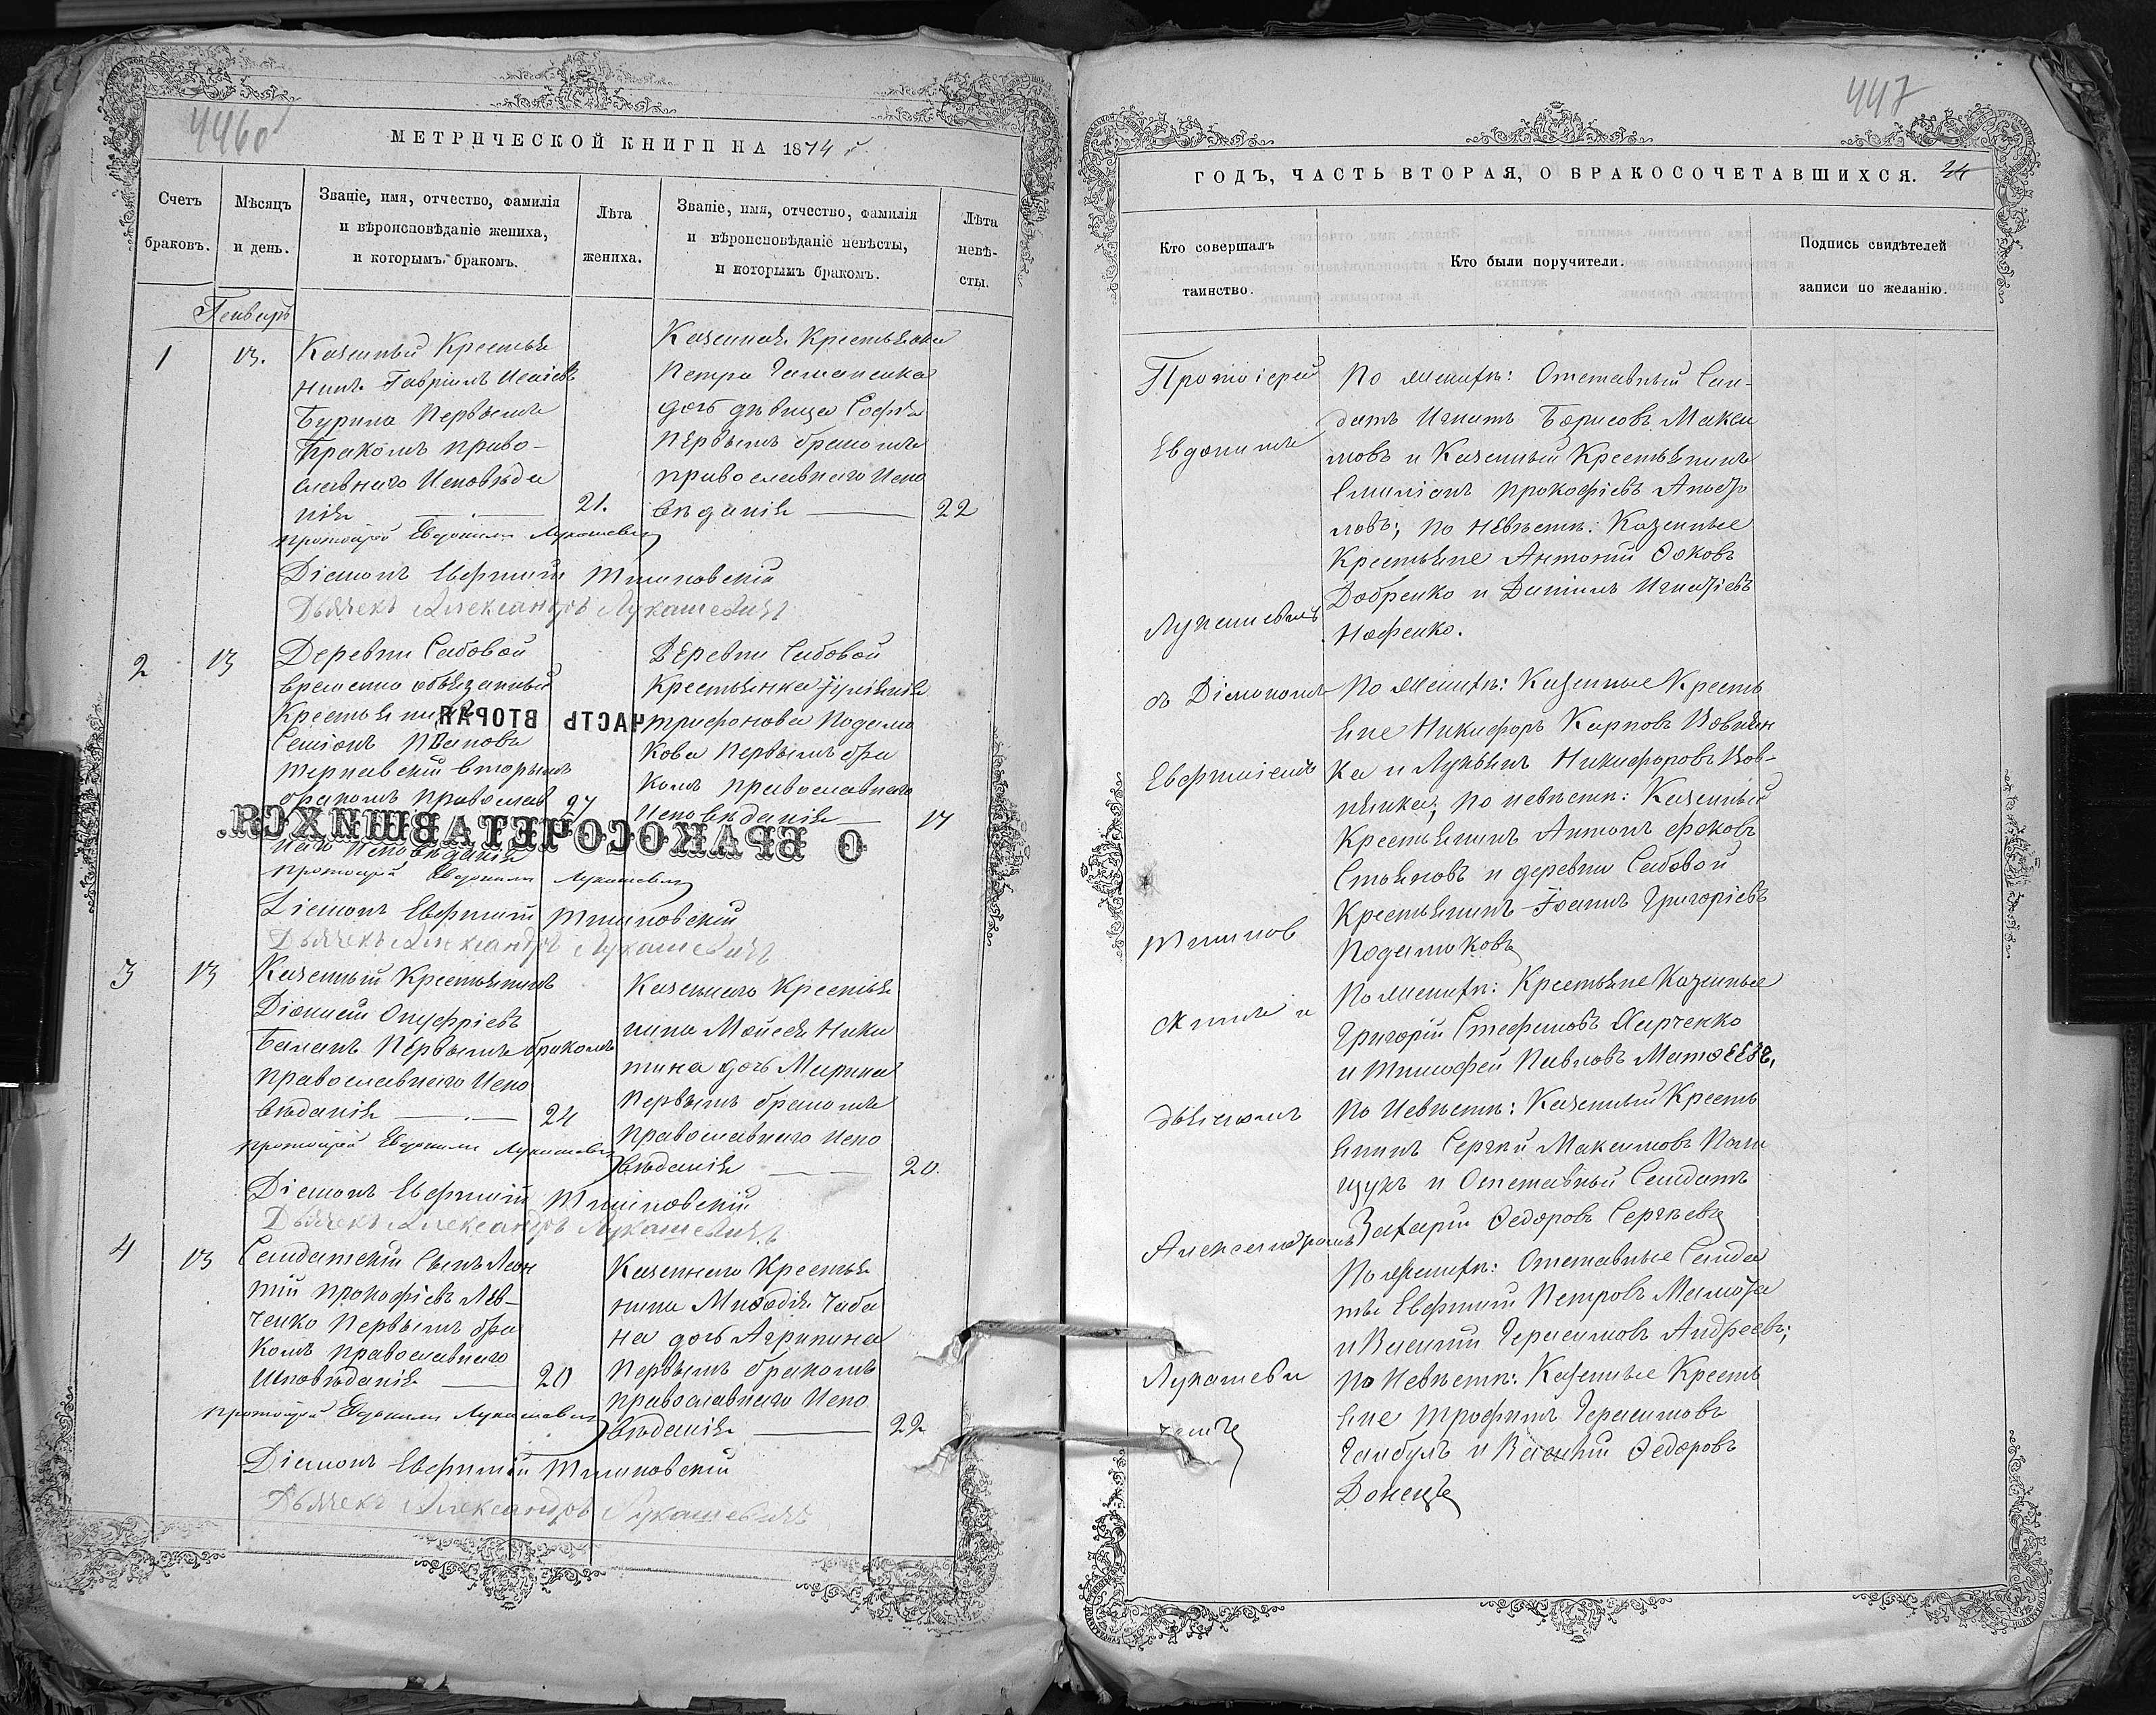 446 об
МЕТРИЧЕСКОЙ КНИГИ НА 1874 г.
Счетъ браковъ.
Мѣсяцъ и день.
Званіе, имя, отчество, фамилія и вѣроисповѣданіе жениха, и которымъ бракомъ.
Лѣта жениха.
Званіе, имя, отчество, фамилія и вѣроисповѣданіе невѣсты, и которымъ бракомъ.
Лѣта невѣ-сты.
Генварь
1
13.
Казенный Крестья
нинъ Гавріилъ Исаіевъ
Бурила Первымъ
Бракомъ право-
славнаго Исповѣда
нія
21.
Казеннаго Крестьянина
Петра
дочь дѣвица Софія
Первымъ бракомъ
православнаго Испо
вѣданія
22
Протоіерей Евдокимъ Лукашевичъ
Діаконъ Евфимій Тшиновскій
Дьячекъ Александръ Лукашевичъ
2
13
Деревни Садовой
временно обязанный
Крестьянинъ
Семіонъ Ивановъ
Тернавскій вторымъ
бракомъ православ
наго Исповѣданія
27
Деревни Садовой
Крестьянка Іуліанія
Трифонова Подама
кова Первымъ бра
комъ православнаго
Исповѣданія
17
ЧАСТЬ ВТОРАЯ
О БРАКОСОЧЕТАВШИХСЯ.
Протоіерей Евдокимъ Лукашевичъ
Діаконъ Евфимій Тшиновскій
Дьячекъ Александръ Лукашевичъ
3
13
Казенный Крестьянинъ
Діонисій Онуфріевъ
Баланъ Первымъ бракомъ
православнаго Испо
вѣданія
24
Казеннаго Крестья
нина Мойсея Ники
тина дочь Марина
Первымъ бракомъ
Православнаго Испо
вѣданія
20.
Протоіерей Евдокимъ Лукашевичъ
Діаконъ Евфимій Тшиновскій
Дьячекъ Александръ Лукашевичъ
4
13
Салдатскій Сынъ Леон
тій Прокофіевъ Лев-
ченко Первымъ бра
комъ православнаго
Исповѣданія
20
Казеннаго Крестья
нина Меѳодія Чаба
на дочь Агрипина
Первымъ бракомъ
православнаго Испо
вѣданія
22
Протоіерей Евдокимъ Лукашевичъ
Діаконъ Евфимій Тшиновскій
Дьячекъ Александръ Лукашевичъ
447
ГОДЪ, ЧАСТЬ ВТОРАЯ, О БРАКОСОЧЕТАВШИХСЯ.
Кто совершалъ таинство.
Кто были поручители.
Подпись свидѣтелей записи по желанію.
Протоіерей
Евдокимъ
Лукашевичъ
съ Діакономъ
Евфиміемъ
Тшинов
скимъ и
дьячкомъ
Александромъ
Лукашеви
чемъ
По женихѣ: Отставный Сал-
датъ Игнатъ Борисовъ Макси
мовъ и Казенный Крестьянинъ
Емиліанъ Прокофіевъ
ловъ; по Невѣстѣ: Казенные
Крестьяне Антоній Ѳоковъ
Добренко и Даніилъ Игнатіевъ
Нофенко.
По женихѣ: Казенные Кресть
яне Никифоръ Карповъ Вовнян
ка и Лукьянъ Никифоровъ Вов-
нянка; по невѣстѣ: Казенный
Крестьянинъ Антонъ Фоковъ
Стояновъ и деревни Садовой
Крестьянинъ Іоаннъ Григоріевъ
Подамаковъ
По женихѣ: Крестьяне Казенные
Григорій Стефановъ Харченко
и Тимофей Павловъ Матѳеевъ,
По Невѣстѣ: Казенный Кресть
янинъ Сергій Максимовъ Пали
щукъ и Отставный Салдатъ
Захарій Ѳедоровъ Сергѣевъ
По женихѣ: Отставные Салда
ты Евфимій Петровъ Мамота
и Василій Герасимовъ Андреевъ;
по Невѣстѣ: Казенные Кресть
яне Трофимъ Герасимовъ
Чамбулъ и Василій Ѳедоровъ
Донецъ